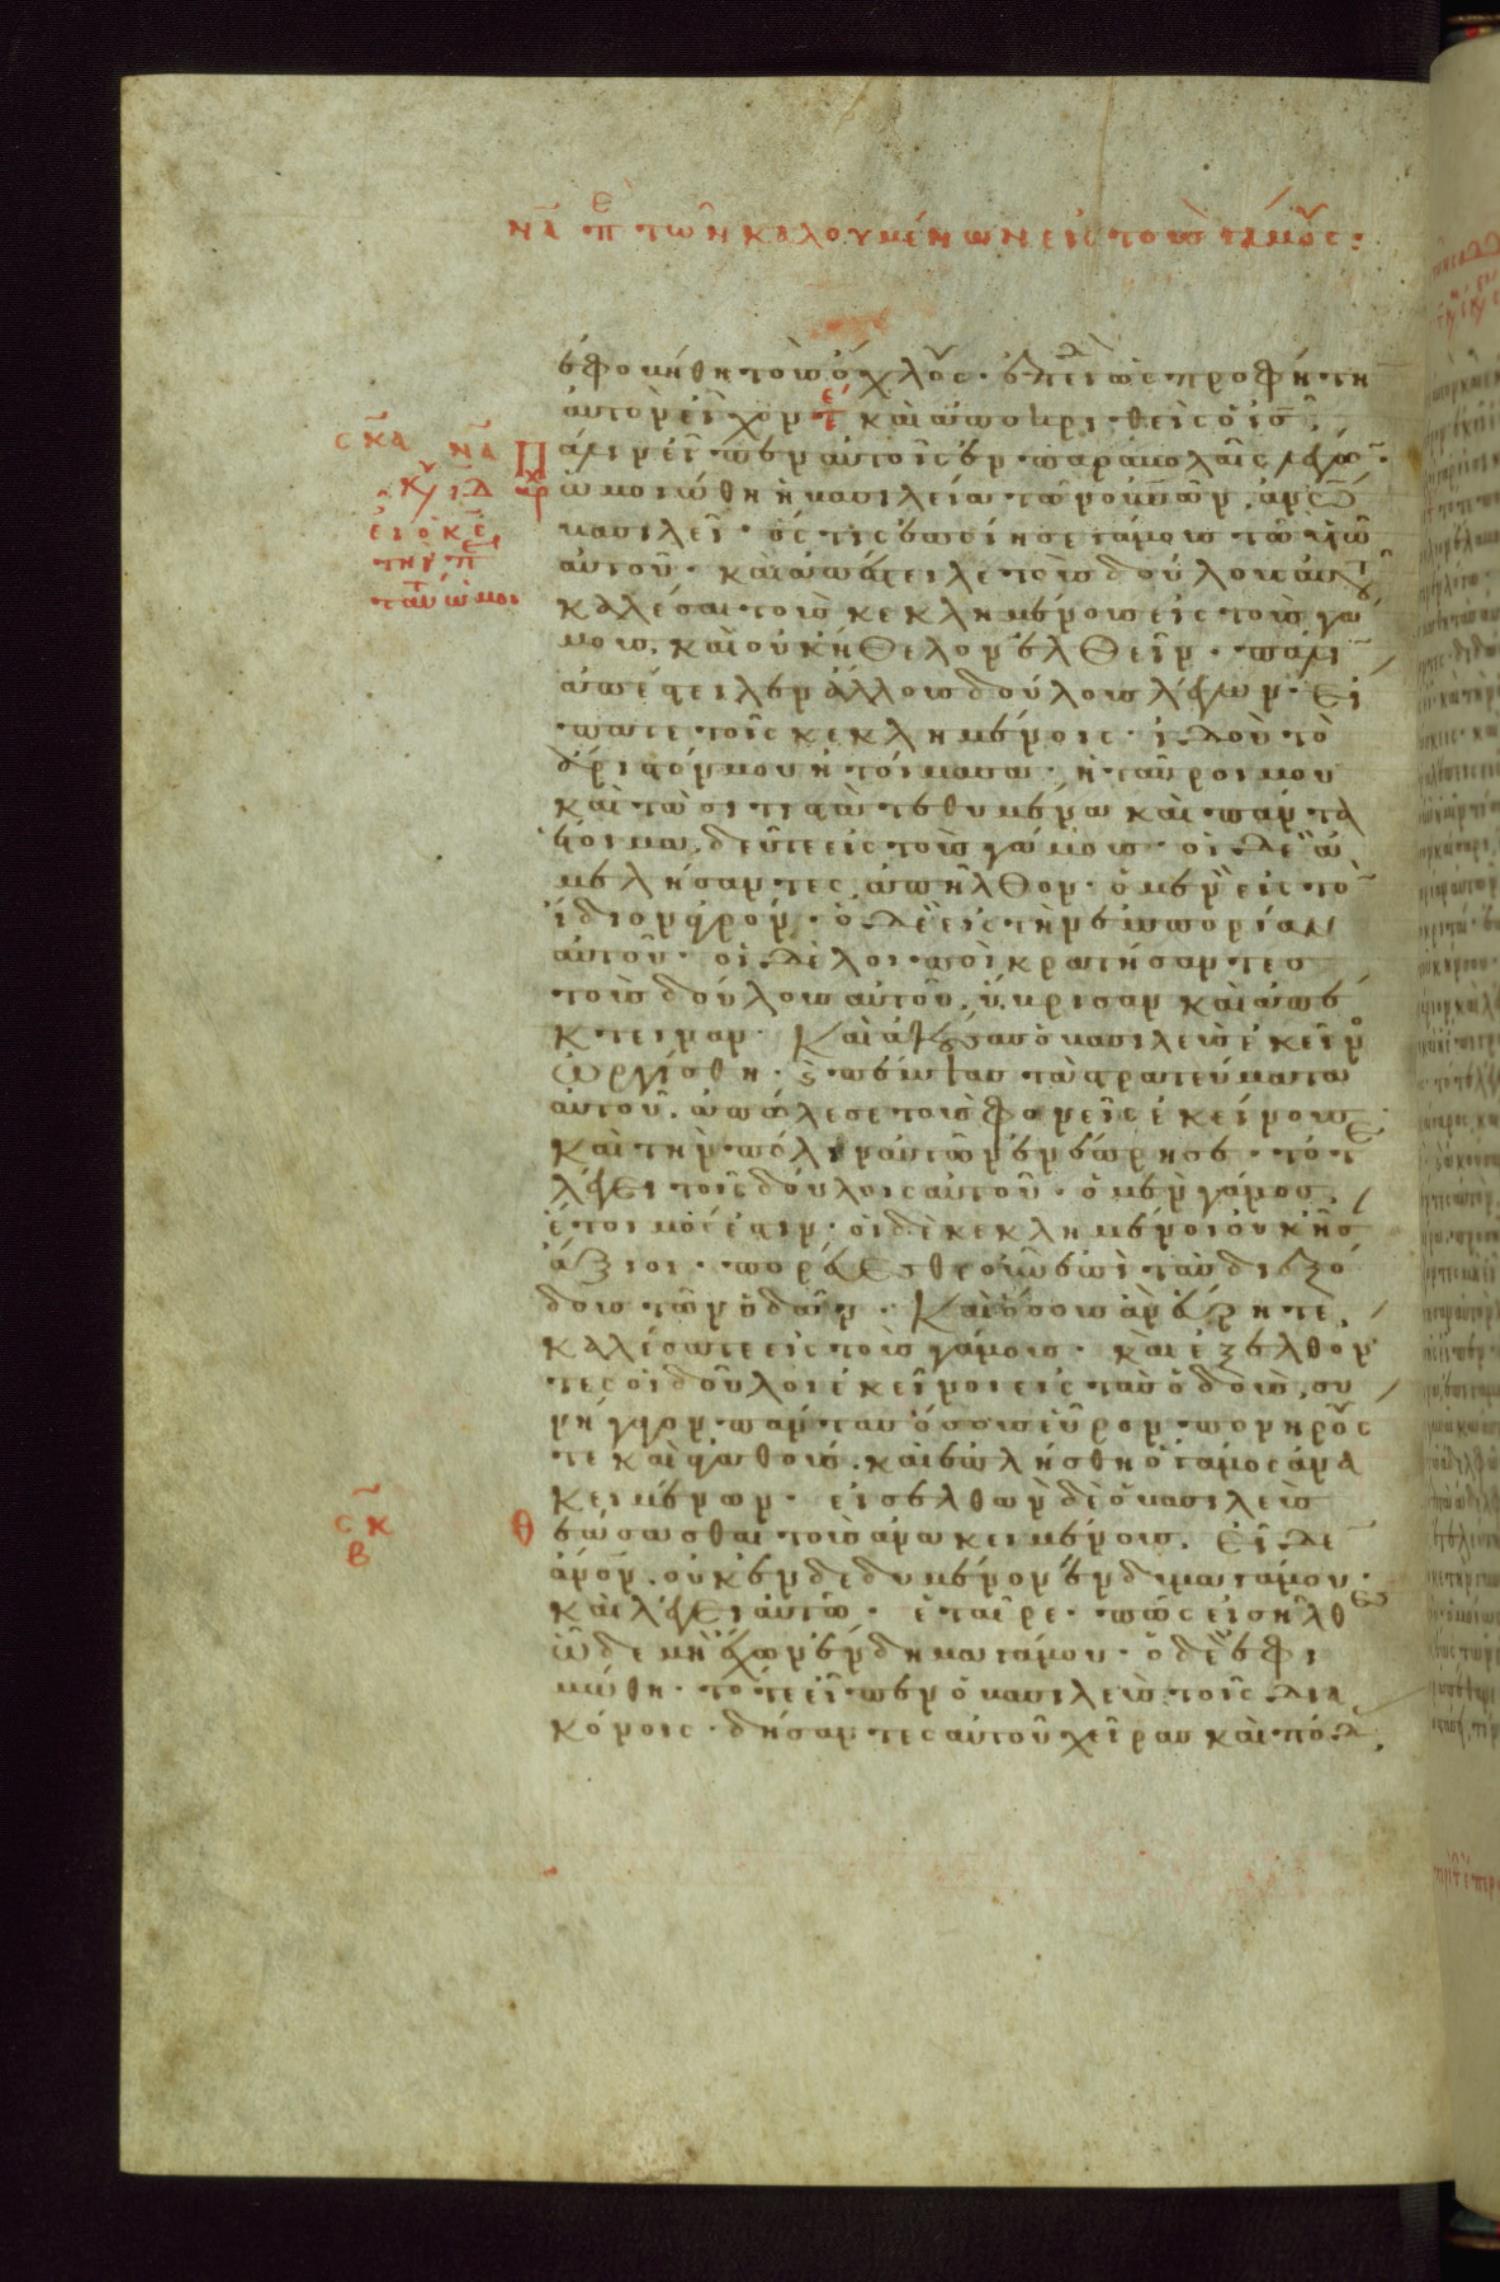 να περὶ τῶν καλουμένων εἰς τοὺς γάμους:
ἐφοβήθη τοὺς ὄχλους· ἐπειδὴ ὡς προφήτη
αὐτὸν εἶχον τε καὶ ἀποκριθεὶς ὁ ις
σκα να Πάλιν εἶπεν αὐτοῖς ἐν παραβολαῖς λέγω·
κυ ιδ αρ ὡμοιώθη ἡ βασιλεία τῶν οὐνῶν ἀνω
ὁμοιώθη
βασιλεῖ· ὅς τις ἐποίησε γάμους τῷ υἱῷ
αὐτοῦ· καὶ ἀπέστειλε τοὺς δούλους αὐτοῦ
καλέσαι τοὺς κεκλημένους εἰς τοὺς γά
μους, καὶ οὐκ ἤθελον ἐλθεῖν· πάλι
ἀπέστειλεν ἄλλους δούλους λέγων· εἴ
πατε τοῖς κεκλημένοις· ἰδοὺ τὸ
ἄριστόν μου ἡτοίμασα· ἡ ταῦροι μου
καὶ τὰ σιτιστὰ τεθυμένα καὶ πάντα
ἕτοιμα, δεῦτε εἰς τοὺς γάμους· οἱ δὲ ἀ
μελήσαντες ἀπῆλθον· ὁ μὲν εἰς τὸ
ἴδιον ἀγρόν· ὁ δὲ εἰς τὴν ἐμπορίαν
αὐτοῦ· οἱ δὲ λοιποὶ κρατήσαντες
τοὺς δούλους αὐτοῦ, ὕβρισαν καὶ ἀπέ
κτειναν· Καὶ ἀκούσας ὁ βασιλεὺς ἐκεῖνο
ὠργίσθη· καὶ πέμψας τὰ στρατεύματα
αὐτοῦ, ἀπώλεσε τοὺς φονεῖς ἐκείνους
καὶ τὴν πόλιν αὐτῶν ἐνέπρησε· τότε
λέγει τοῖς δούλοις αὐτοῦ· ὁ μὲν γάμος
ἕτοιμός ἐστιν· οἱ δὲ κεκλημένοι οὐκ ἦσ
ἄξιοι· πορεύεσθε οὖν ἐπὶ τὰς διεξό
δους τῶν ὁδῶν· Καὶ ὅσους ἂν εὕρητε,
καλέσατε εἰς τοὺς γάμους· καὶ ἐξελθόν
τες οἱ δοῦλοι ἐκεῖνοι εἰς τὰς ὁδοὺς, συ
νήγαγον πάντας ὅσους εὗρον πονηρούς
τε καὶ ἀγαθούς· καὶ ἐπλήσθη ὁ γάμος ἀνα
κειμένων· εἰσελθὼν δὲ ὁ βασιλεὺς
σκβ θεάσασθαι τοὺς ἀνακειμένους, εἶδε
ἀνον, οὐκ ἐνδεδυμένον ἔνδιμα γάμου·
καὶ λέγει αὐτῷ· ἑταῖρε· πῶς εἰσῆλθες
ὧδε μὴ ἔχων ἔνδημα γάμου· ὁ δὲ ἐφι
μώθη· τότε εἶπεν ὁ βασιλεὺς τοῖς δια
κόνοις· δήσαντες αὐτοῦ χεῖρας καὶ πόδ